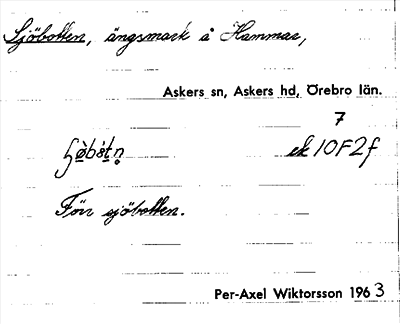 Sjöbotten, ängsmark å Hammar,
Askers sn, Askers hd, Örebro län.
7
ek 10F2f
Förr sjöbotten.
Per-Axel Wiktorsson 1963